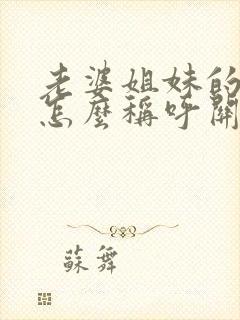 老婆姐妹的
怎麼稱呼開
蘇舞